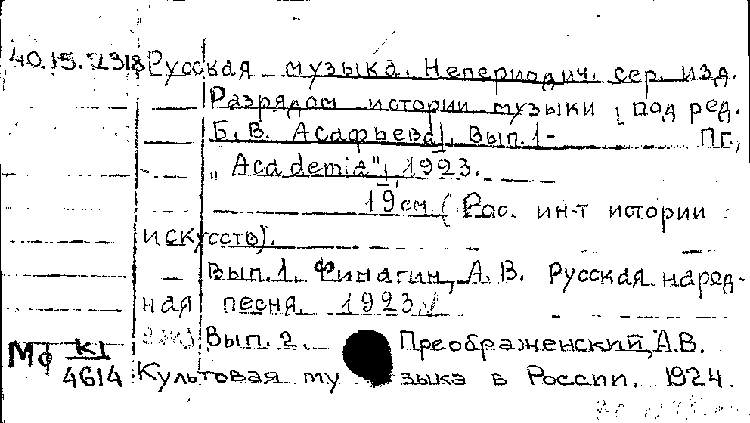 40.15.2318 Русская музыка. Непериодич. сер. изд.
Разрядом истории музыки, под ред.
Б. В. Асафьева]. Вып. 1- Пг.,
„Academia", 1923.
19 см. (Рос. ин-т истории
искусств).
Вып. 1. Финагин, А. В. Русская народ-
ная песня. 1923
Вып. 2. Преображенский, А.В.
Мф К1/4614 Культовая му зыка в России. 1924.